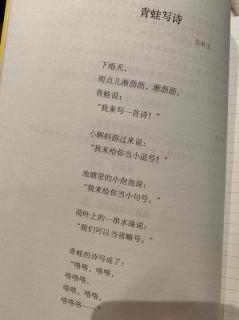 青蛙写诗
下雨天，
雨点儿淅沥沥，淅沥沥，
青蛙说：
“我来写一首诗！”
小蝌蚪游过来说：
“我来给你当小逗号！”
池塘里的小泡泡说：
“我来给你当小句号。”
荷叶上的一串水珠说：
“我们可以当省略号。”
青蛙的诗写成了：
“咯咯，咯咯，
咯咯咯，
咯咯，咯咯，
咯咯咯……”